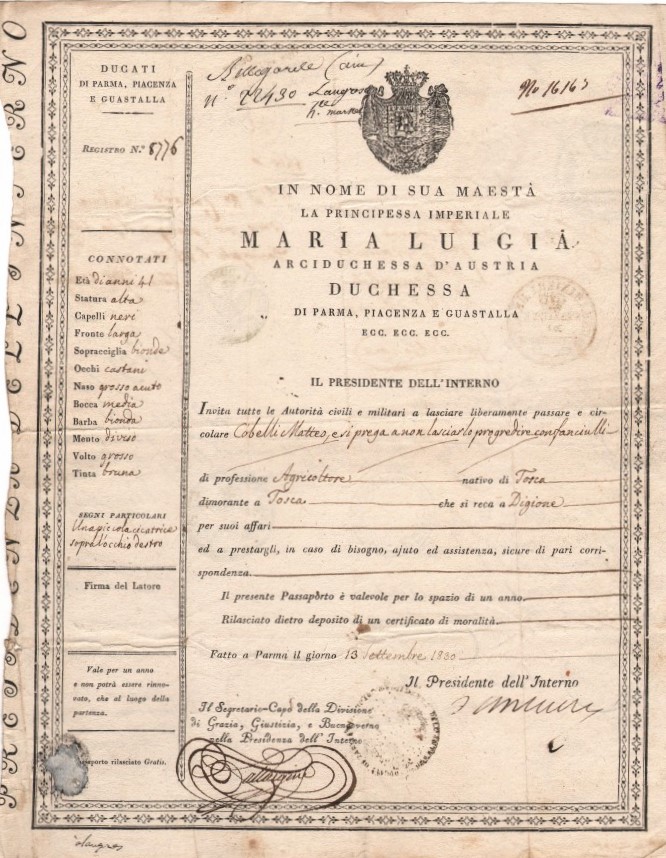 DUCATI
DI PARMA, PIACENZA
E GUASTALLA
REGISTRO N.º 8776
CONNOTATI
Età di anni 41
Statura alta
Capelli neri
Fronte larga
Sopracciglia bionde
Occhi castani
Naso grosso acuto
Bocca media
Barba bionda
Mento diviso
Volto grosso
Tinta bruna
SEGNI PARTICOLARI
Una picola cicatrice
sopra l'occhio destro
Firma del Latore
Vale per un anno
e non potrà essere rinno-
vato, che al luogo della
partenza.
rilasciato Gratis.
nº 22430
No 16165
IN NOME DI SUA MAESTÀ
LA PRINCIPESSA IMPERIALE
MARIA LUIGIA
ARCIDUCHESSA D'AUSTRIA
DUCHESSA
DI PARMA, PIACENZA E GUASTALLA
ECC. ECC. ECC.
IL PRESIDENTE DELL'INTERNO
Invita tutte le Autorità civili e militari a lasciare liberamente passare e cir-
colare Cobelli Matteo, e si prega a non lasciarlo progredire con fanciulli
di professione Agricoltore nativo di Tosca
dimorante a Tosca che si reca a Digione
per suoi affari
ed a prestargli, in caso di bisogno, ajuto ed assistenza, sicure di pari corri-
spondenza.
Il presente Passaporto è valevole per lo spazio di un anno.
Rilasciato dietro deposito di un certificato di moralità.
Fatto a Parma il giorno 13 Settembre 1830.
Il Presidente dell'Interno
Il Segretario-Capo della Divisione
di Grazia, Giustizia, e Buongoverno
nella Presidenza dell'Interno